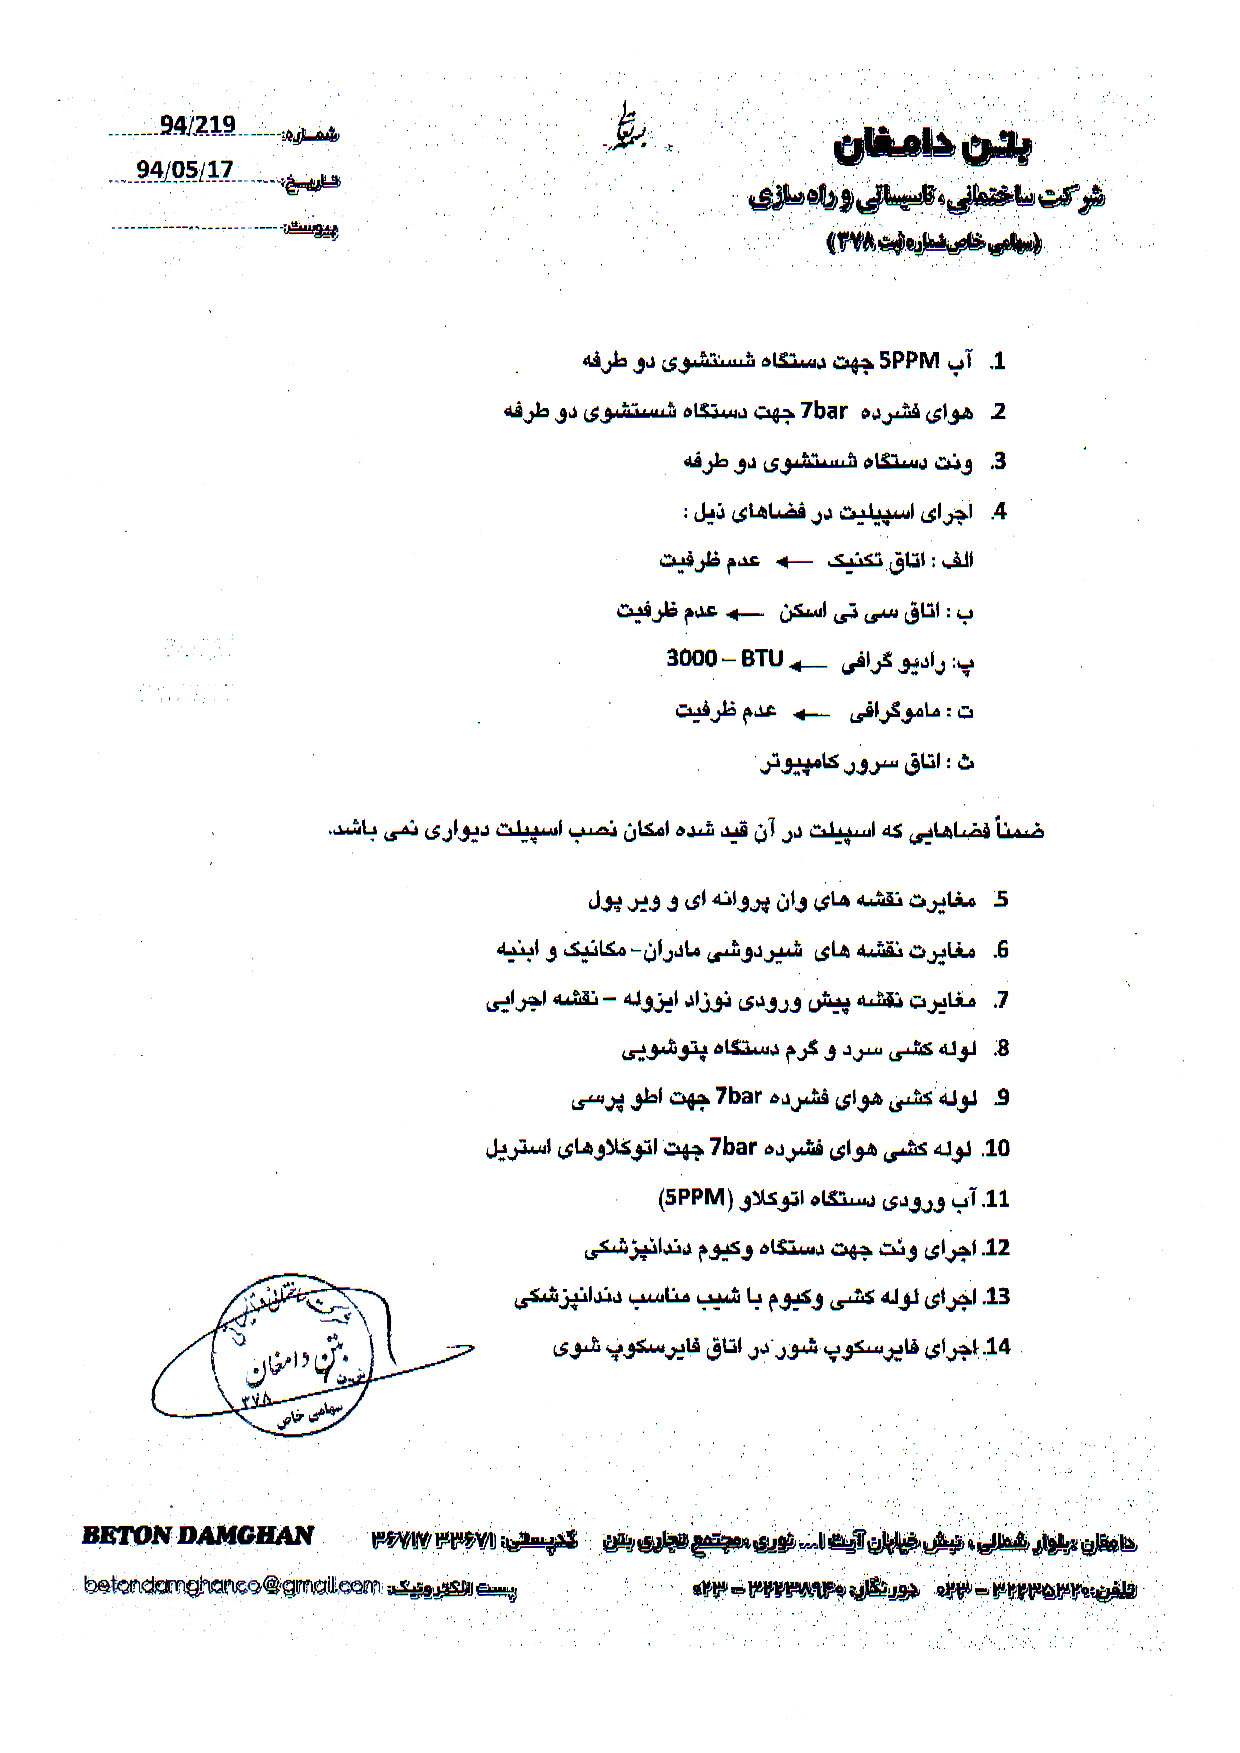 بسمه تعالی
بتن دامغان
شرکت ساختمانی، تاسیساتی و راه سازی
(سهامی خاص شماره ثبت ۳۷۸)
شماره: 94/219
تاریخ: 94/05/17
پیوست:
1. آب 5PPM جهت دستگاه شستشوی دو طرفه
2. هوای فشرده 7bar جهت دستگاه شستشوی دو طرفه
3. ونت دستگاه شستشوی دو طرفه
4. اجرای اسپیلیت در فضاهای ذیل :
الف : اتاق تکنیک ← عدم ظرفیت
ب : اتاق سی تی اسکن ← عدم ظرفیت
پ: رادیو گرافی ← 3000 – BTU
ت : ماموگرافی ← عدم ظرفیت
ث : اتاق سرور کامپیوتر
ضمناً فضاهایی که اسپیلت در آن قید شده امکان نصب اسپیلت دیواری نمی باشد.
5. مغایرت نقشه های وان پروانه ای و ویر پول
6. مغایرت نقشه های شیردوشی مادران- مکانیک و ابنیه
7. مغایرت نقشه پیش ورودی نوزاد ایزوله – نقشه اجرایی
8. لوله کشی سرد و گرم دستگاه پتوشویی
9. لوله کشی هوای فشرده 7bar جهت اطو پرسی
10. لوله کشی هوای فشرده 7bar جهت اتوکلاوهای استریل
11. آب ورودی دستگاه اتوکلاو (5PPM)
12. اجرای ونت جهت دستگاه وکیوم دندانپزشکی
13. اجرای لوله کشی وکیوم با شیب مناسب دندانپزشکی
14. اجرای فایرسکوپ شور در اتاق فایرسکوپ شوی
شرکت ساختمانی تاسیساتی
بتن دامغان
ثبت ۳۷۸
سهامی خاص
دامغان ،بلوار شمالی ، نبش خیابان آیت ا... نوری ،مجتمع تجاری بتن کدپستی: ۳۳۶۷۱ ۳۶۷۱۷ BETON DAMGHAN
تلفن: ۳۲۲۳۵۳۲۰ – ۰۲۳ دورنگار: ۳۲۲۳۸۹۴۰ – ۰۲۳ پست الکترونیک: betondamghanco@gmail.com